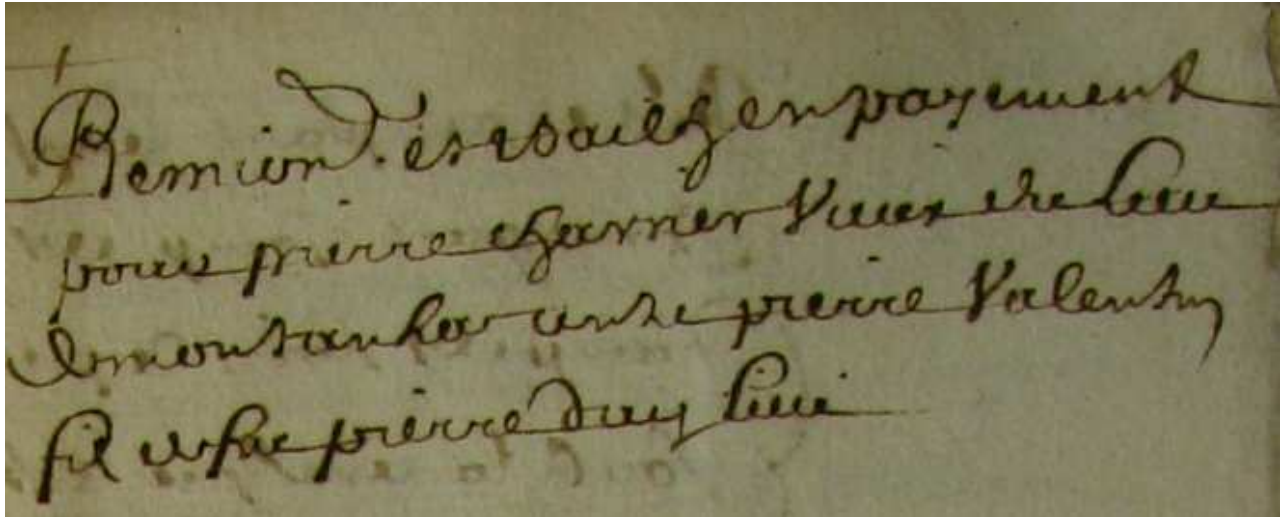 Remion d. et bailh en payement
pour pierre charrier vieux du lieu
de montanhac contre pierre Valentin
fil de feu pierre duy lieu